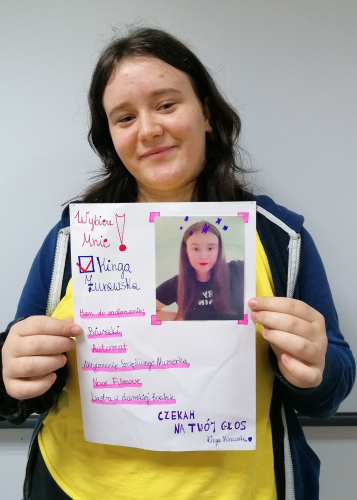 Wybierz
Mnie!
Kinga
Żurawska
Mam do zaoferowania:
Biwaki
Automat
Aktywowanie Szczęśliwego Numerka
Noce Filmowe
Lustra w damskiej toalecie
CZEKAM
NA TWÓJ GŁOS
Kinga Żurawska